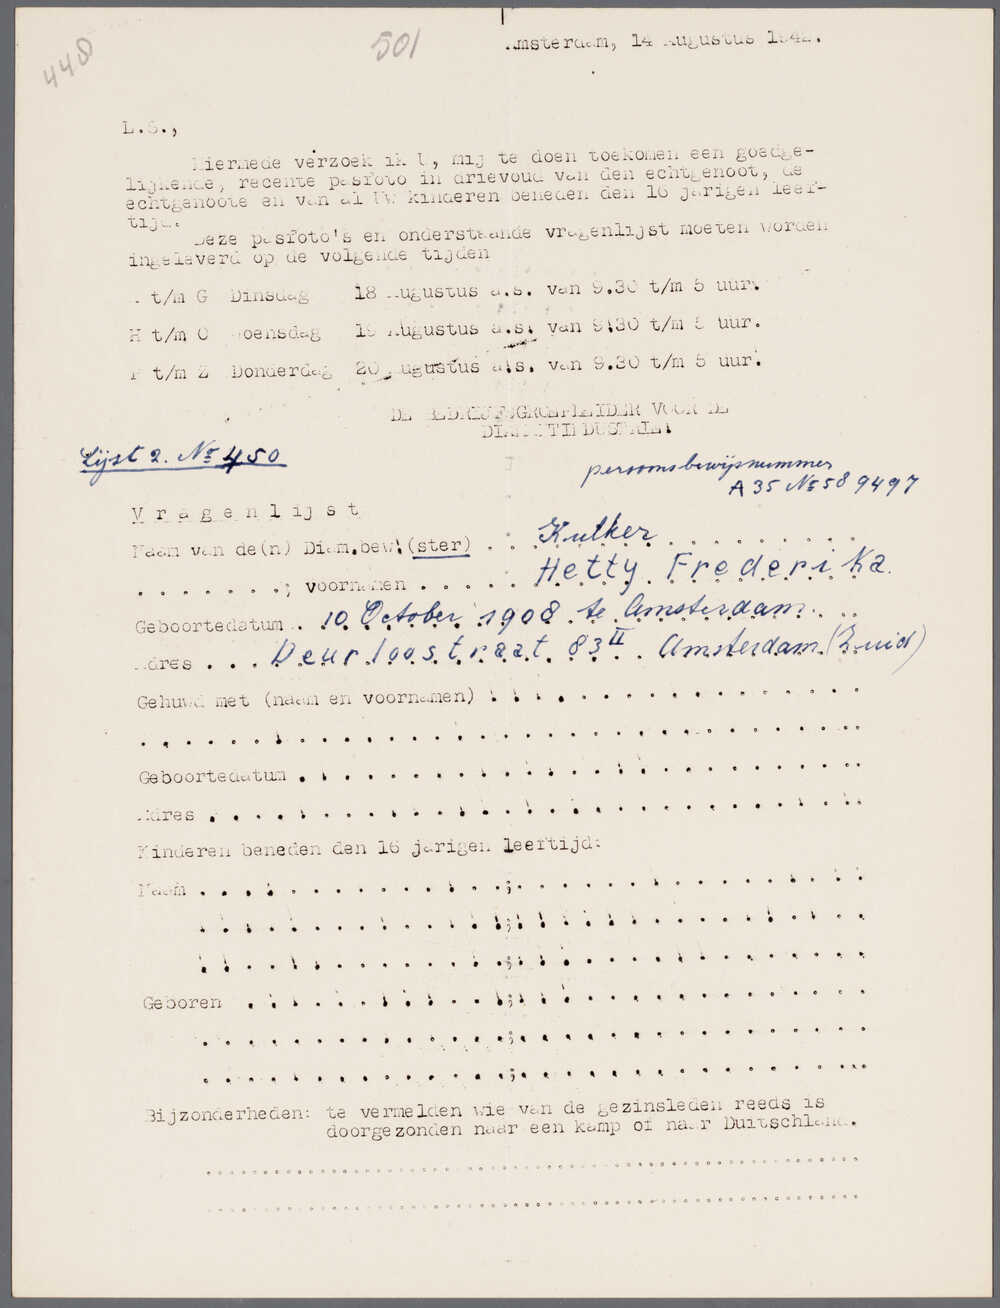 448
501
Amsterdam, 14 Augustus 1942.
L.S.,
Hiermede verzoek ik U, mij te doen toekomen een goedge-
lijkende, recente pasfoto in drievoud van den echtgenoot, de
echtgenoote en van al Uw kinderen beneden den 16 jarigen leef-
tijd.
Deze pasfoto's en onderstaande vragenlijst moeten worden
ingeleverd op de volgende tijden
A t/m G Dinsdag 18 Augustus a.s. van 9.30 t/m 5 uur.
H t/m O Woensdag 19 Augustus a.s. van 9.30 t/m 5 uur.
P t/m Z Donderdag 20 Augustus a.s. van 9.30 t/m 5 uur.
DE BEDRIJFSGROEPLEIDER VOOR DE
DIAMANTINDUSTRIE.
Lijst 2. No 450
persoonsbewijsnummer
A 35 No 589497
Vragenlijst
Naam van de(n) Diam.bew.(ster) . . Kulker . . . . . . . . .
. . . . . . .; voornamen . . . . . Hetty Frederika
Geboortedatum . 10 October 1908 te Amsterdam . . .
Adres . . . Deurloostraat 83 II . Amsterdam (Zuid)
Gehuwd met (naam en voornamen) . . . . . . . . . . . . . . . .
Geboortedatum . . . . . . . . . . . . . . . . . . . . . . . .
Adres . . . . . . . . . . . . . . . . . . . . . . . . . . . .
Kinderen beneden den 16 jarigen leeftijd:
Naam . . . . . . . . . . . . . . ; . . . . . . . . . . . . . . .
. . . . . . . . . . . . . . ; . . . . . . . . . . . . . . .
. . . . . . . . . . . . . . ; . . . . . . . . . . . . . . .
Geboren . . . . . . . . . . . . ; . . . . . . . . . . . . . . .
. . . . . . . . . . . . . . ; . . . . . . . . . . . . . . .
. . . . . . . . . . . . . . ; . . . . . . . . . . . . . . .
Bijzonderheden: te vermelden wie van de gezinsleden reeds is
doorgezonden naar een kamp of naar Duitschland.